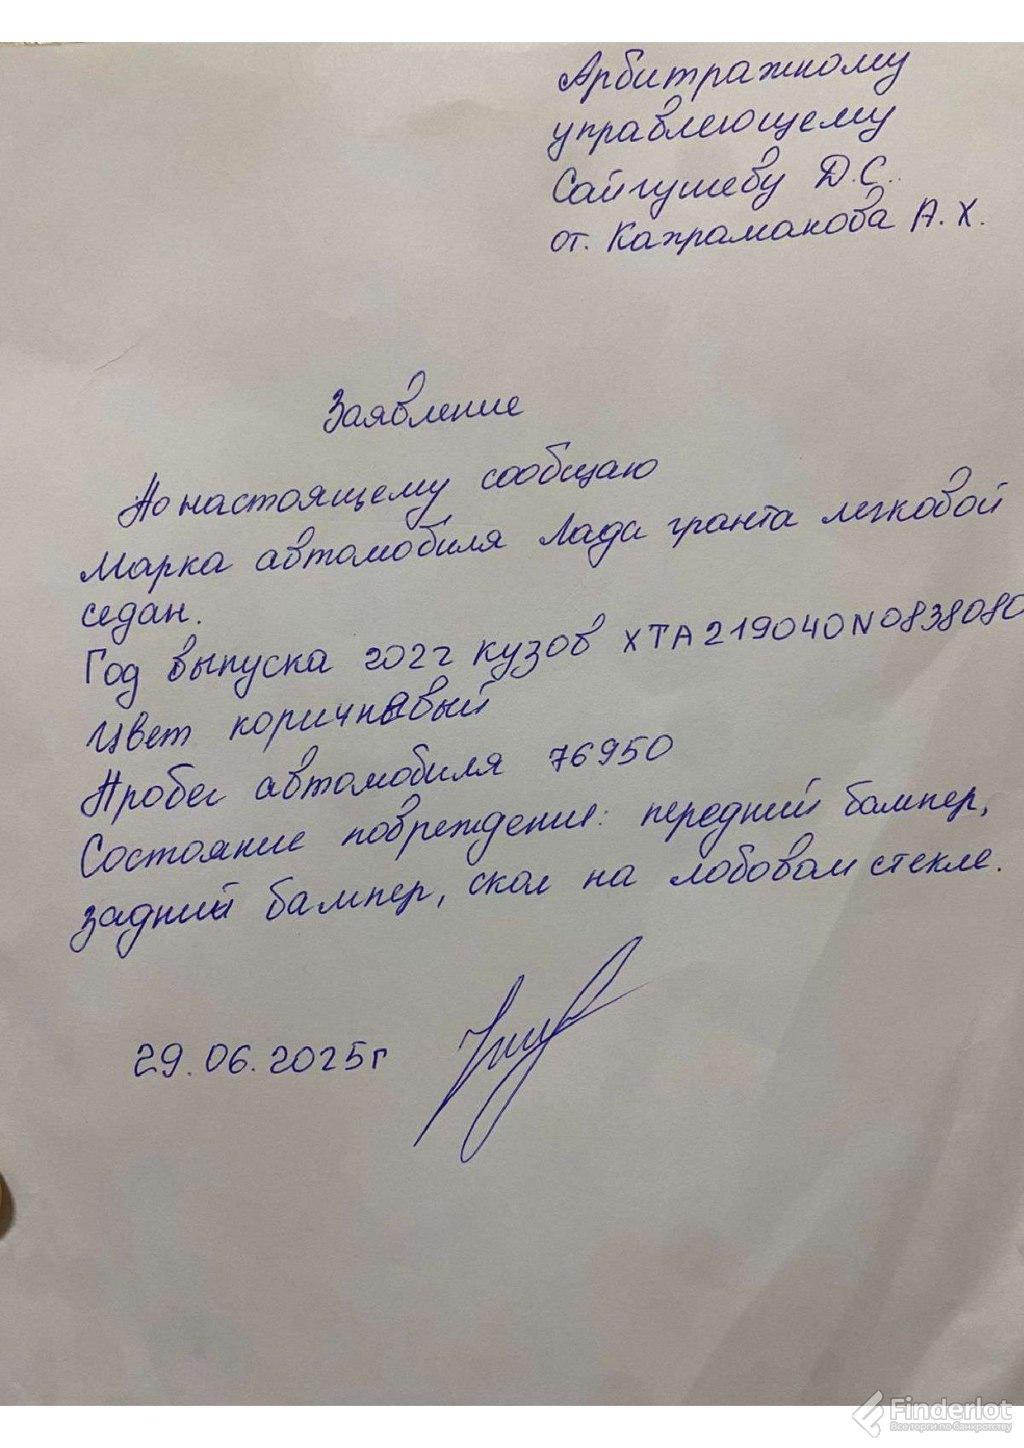 Арбитражному
управляющему
Сайгушеву Д.С.
от. Кахраманова А.Х.
Заявление
По настоящему сообщаю
Марка автомобиля Лада гранта легковой
седан.
Год выпуска 2022 кузов XTA219040N0838080
Цвет коричневый
Пробег автомобиля 76950
Состояние повреждения: передний бампер,
задний бампер, скол на лобовом стекле.
29.06.2025г
Finderlot
Все торги по банкротству